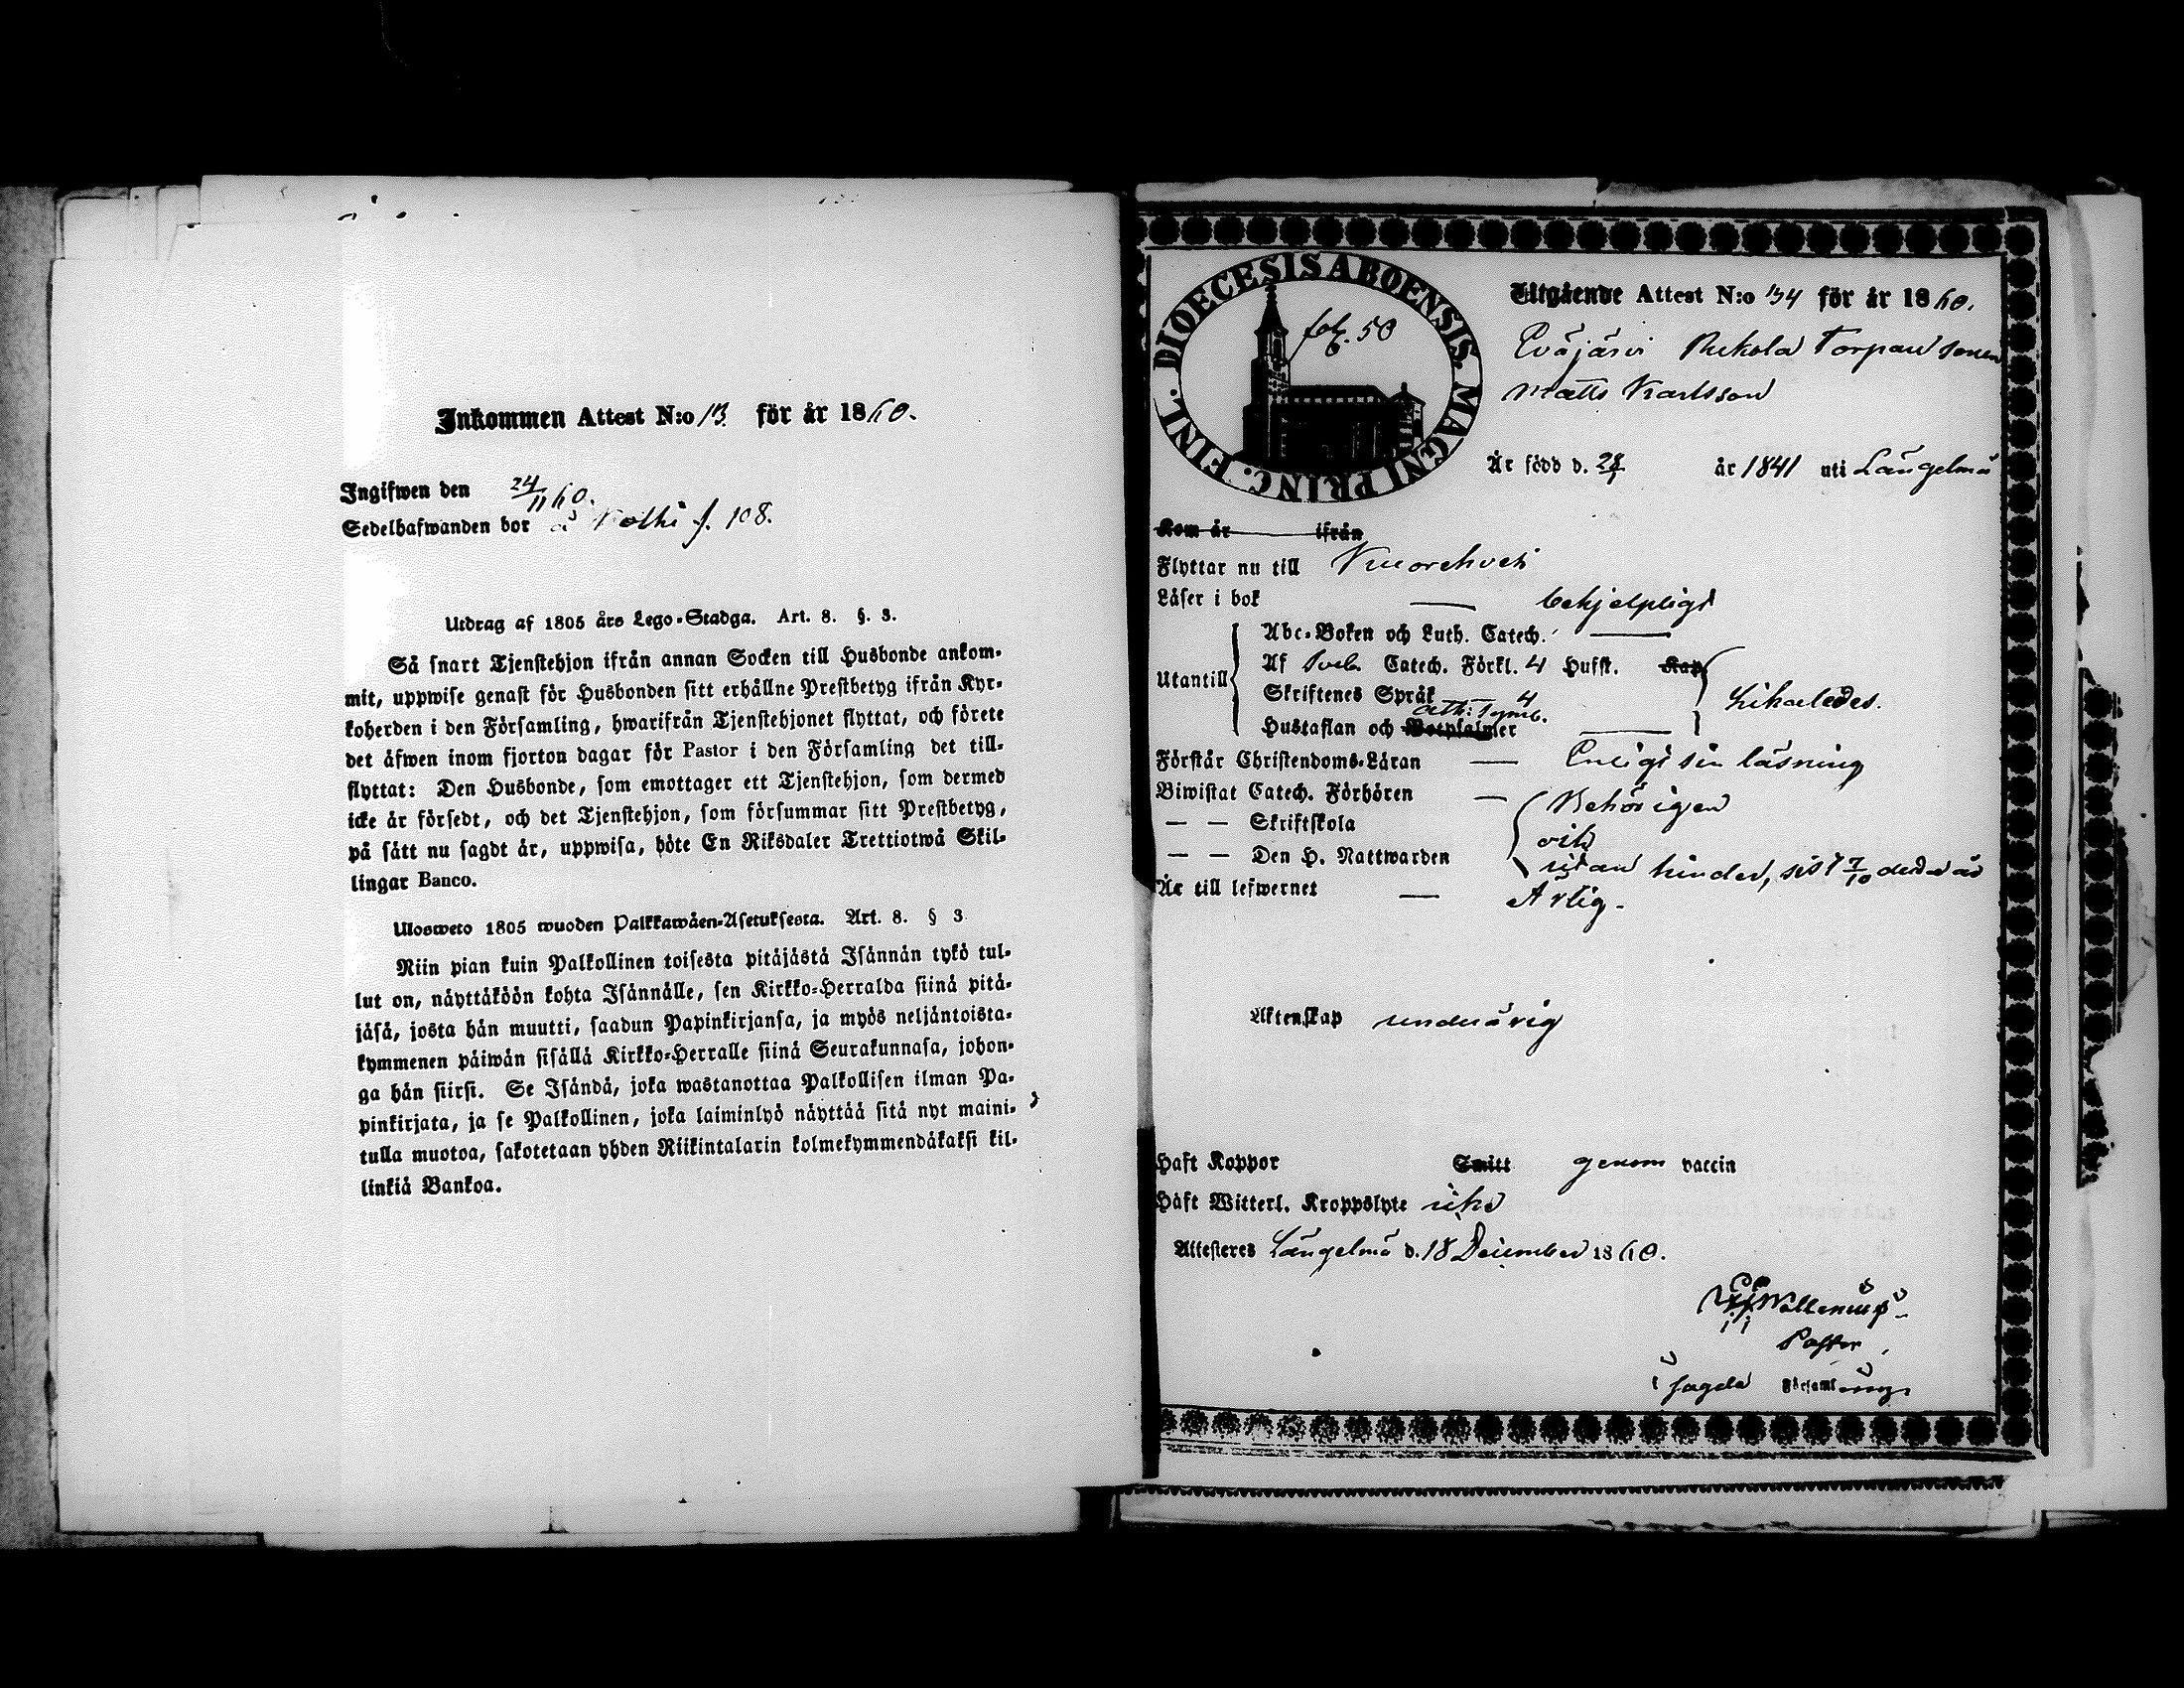 Inkommen Attest N:o 113 för år 1860.
Ingifwen den 24/11 60.
Sedelhafwanden bor å Kolhi f. 108.
Utdrag af 1805 års Lego-Stadga. Art. 8. §. 3.
Så snart Tjenstehjon ifrån annan Socken till Husbonde ankom-
mit, uppwise genast för Husbonden sitt erhållne Prestbetyg ifrån Kyr-
koherden i den Församling, hwarifrån Tjenstehjonet flyttat, och förete
det äfwen inom fjorton dagar för Pastor i den Församling det till-
flyttat: Den Husbonde, som emottager ett Tjenstehjon, som dermed
icke är försedt, och det Tjenstehjon, som försummar sitt Prestbetyg,
på sätt nu sagdt är, uppwisa, böte En Riksdaler Trettiotwå Skil-
lingar Banco.
Ulosweto 1805 wuoden Palkkawäen-Asetuksesta. Art. 8. § 3
Niin pian kuin Palkollinen toisesta pitäjästä Isännän tykö tul-
lut on, näyttäköön kohta Isännälle, sen Kirkko-Herralda siinä pitä-
jäsä, josta hän muutti, saadun Papinkirjansa, ja myös neljäntoista-
kymmenen päiwän sisällä Kirkko-Herralle siinä Seurakunnasa, johon-
ga hän siirsi. Se Isändä, joka wastanottaa Palkollisen ilman Pa-
pinkirjata, ja se Palkollinen, joka laiminlyö näyttää sitä nyt maini-
tulla muotoa, sakotetaan yhden Riikintalarin kolmekymmendäkaksi kil-
linkiä Bankoa.
DIOECESIS ABOENSIS. MAGNI PRINC. FINL.
fol. 50
Utgående Attest N:o 134 för år 1860.
Eväjärvi Torparesonen
Matts Karlsson
Är född d. år 1841 uti Längelmä
Kom år ifrån
Flyttar nu till Kuorehvesi
Läser i bok — behjelpligt
Utantill
Abc-Boken och Luth. Catech. —
Af Sveb. Catech. Förkl. 4 Hufst. Kap
Skriftenes Språk 4
ath: Symb.
Hustaflan och Botpsalmer —
Likaledes.
Förstår Christendoms-Läran — Enligt sin läsning
Biwistat Catech. Förhören — Behörigen
— — Skriftskola och
— — Den H. Nattwarden utan hinder, sist 7/10 detta år
Är till lefwernet — Ärlig.
Äktenskap underårig
Haft Koppor Smitt genom vaccin
Häft Witterl. Kroppslyte icke
Attesteres Längelmä d. 18 December 1860.
Wallenius
Pastor
i sagde Församling